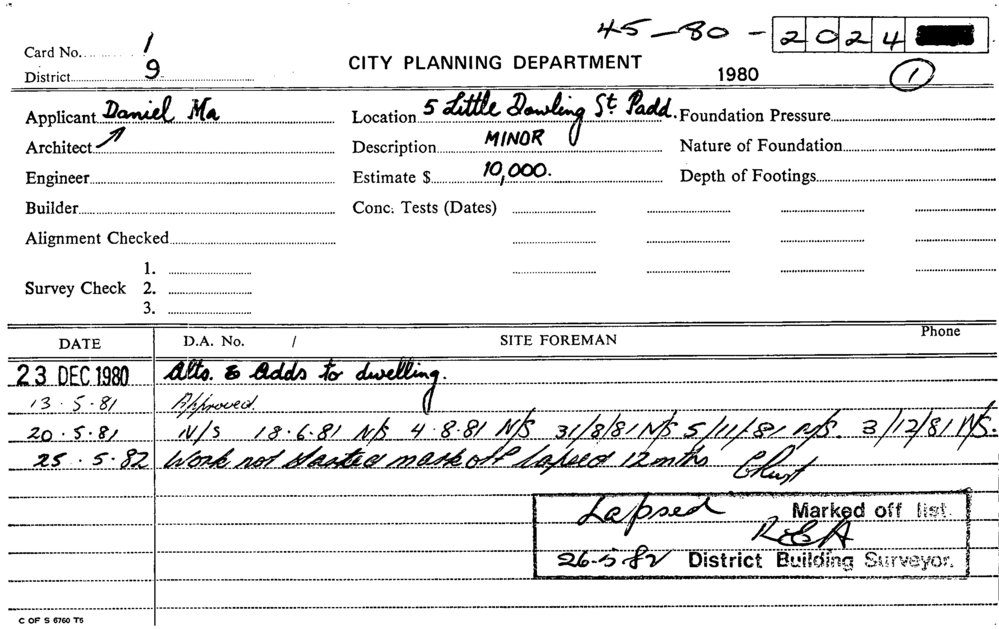 45-80-2024
Card No. 1
CITY PLANNING DEPARTMENT
District 9
1980
1
Applicant Daniel Ma
Location 5 Little Dowling St. Padd.
Foundation Pressure
Architect
Description MINOR
Nature of Foundation
Engineer
Estimate $ 10,000.
Depth of Footings
Builder
Conc. Tests (Dates)
Alignment Checked
1.
Survey Check 2.
3.
DATE D.A. No. / SITE FOREMAN Phone
23 DEC 1980 Alts. & Adds to dwelling.
13.5.81 Approved.
20.5.81 N/S 18.6.81 N/S 4.8.81 N/S 31/8/81 N/S 5/11/81 N/S. 3/12/81 N/S.
25.5.82 Work not started mark off lapsed 12 mths
Lapsed Marked off list.
26-5-82 District Building Surveyor.
C OF S 6760 T6